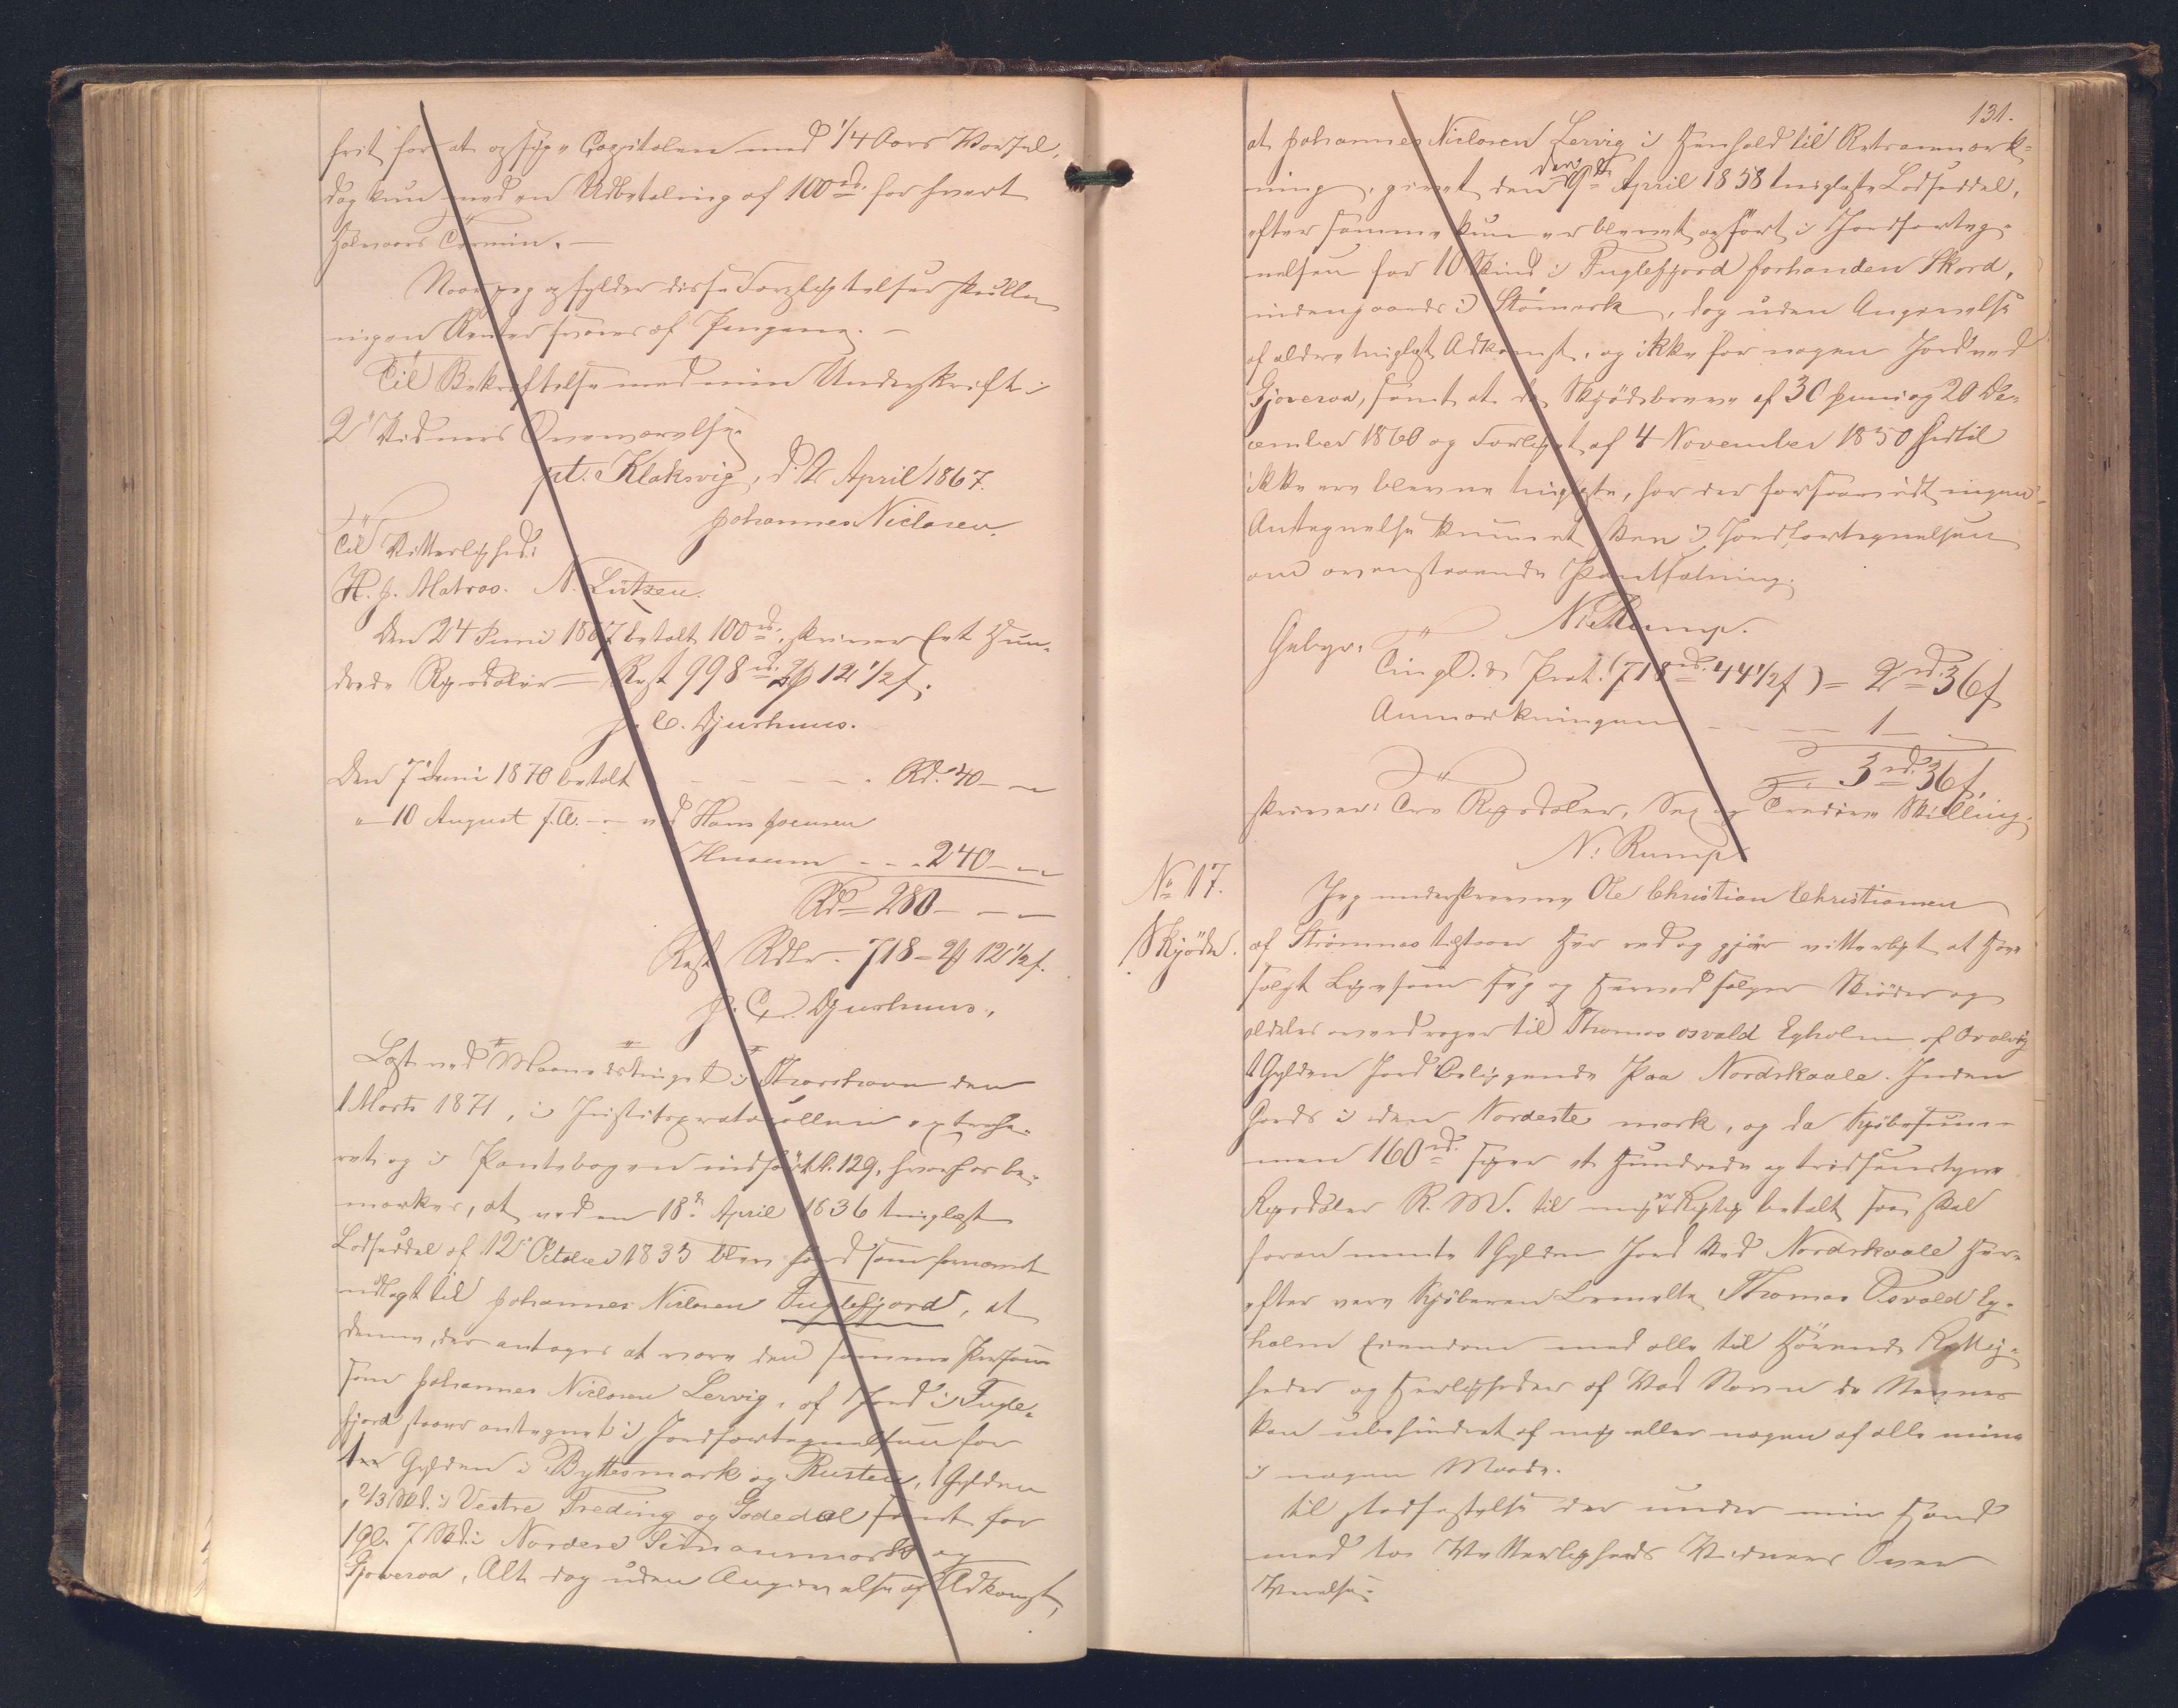 frit for at opsige Capitalen med 1/4 Aars Varsel,
dog kun med en Udbetaling af 100 rd. for hvert
Halvaars Termin. —
Naar jeg opfylder disse Forpligtelser skulle
ingen Renter svares af Pengene. —
Til Bekræftelse med min Underskrift i
2 Vidners Overværelse.
pt. Klaksvig, d. 2 April 1867.
Johannes Niclasen.
Til Vitterlighed:
H. J. Matras. N. Lützen.
Den 24 Juni 1867 betalt 100 rd. skriver Eet Hun-
drede Rigsdaler — Rest 998 rd. 2 # 12 1/2 f.
J. C. Djurhuus.
Den 7 Juni 1870 betalt - - - - Rd. 40 — —
" — 10 August s. A. — ved Hans Joensen
Husum - - - 240 — —
Rd = 280 — — —
Rest Rdlr. — 718 — 2 # 12 1/2 f.
J. C. Djurhuus.
Læst ved Maanedstinget i Thorshavn den
1 Marts 1871, i Justitsprotocollen extrahe-
ret og i Pantebogen indført fol. 129, hvorhos be-
mærkes, at ved en 18de April 1836 tinglæst
Lodseddel af 12 October 1835 blev Jord som fornævnt
udlagt til Johannes Niclasen Fuglefjord, at
denne, der antages at være den samme Person
som Johannes Niclasen Lervig, af Jord i Fugle-
fjord staaer antegnet i Jordfortegnelsen for
1 Gylden i Byttesmark og Rusten, 1 Gylden
2/3 Skd. i Vestre Treding og Godedal samt for
1 Gl. 7 Skd. i Nordere Simanmark og
Gjoveraa, Alt dog uden Angivelse af Adkomst,
131.
at Johannes Niclasen Lervig i Henhold til Retsanmærk-
ning, givet den 9de April 1858 tinglæste Lodseddel,
efter samme kun er blevet opført i Jordforteg-
nelsen for 10 Skind i Fuglefjord forhanden Skord,
indengaards i Stømark, dog uden Angivelse
af ældre tinglæst Adkomst, og ikke for nogen Jord ved
Gjoveraa, samt at de Skjødebreve af 30 Juni og 20 De-
cember 1860 og Forligt af 4 November 1850 hidtil
ikke ere blevne tinglæste, har der forsaavidt ingen
Antegnelse kunnet skee i Jordfortegnelsen
om ovenstaaende Pantsætning.
N. Rump.
Gebyr:
Tingl. & Prot. (718 rd. 44 1/2 f) = 2 rd. 36 f
Anmærkningen - - - 1 —
= 3 rd. 36 f,
skriver: Tre Rigsdaler, Sex og Tredive Skilling.
N. Rump
No 17.
Skjøde.
Jeg underskrevne Ole Christian Christiansen
af Strømnes tilstaaer Her ved og gjør vitterligt at Have
solgt Ligesom Jeg og Hermed sælger Skiøder og
aldeles overdrager til Thomas Osvald Egholm af Qvalvig
1 Gylden Jord Beliggende Paa Nordskaale. Inden
Gards i den Nordeste mark, og da Kjøbesum-
men 160 rd. siger et Hundrede og tredsenstyve
Rigsdaler R. M. til mig er Rigtig betalt saa skal
foran nævnte 1 Gylden Jord Ved Nordskaale Her-
efter være Kjøberen Bemelte Thomas Osvald Eg-
holm Eiendom med alle til Hørende Rettig-
heder og Herligheder af Vad Navn de Nævnes
kan ubehindret af mig eller nogen af alle mine
i nogen Maade.
til stadfæstelse der under min Haand
med to Vitterligheds Vidners Over
Værelse.